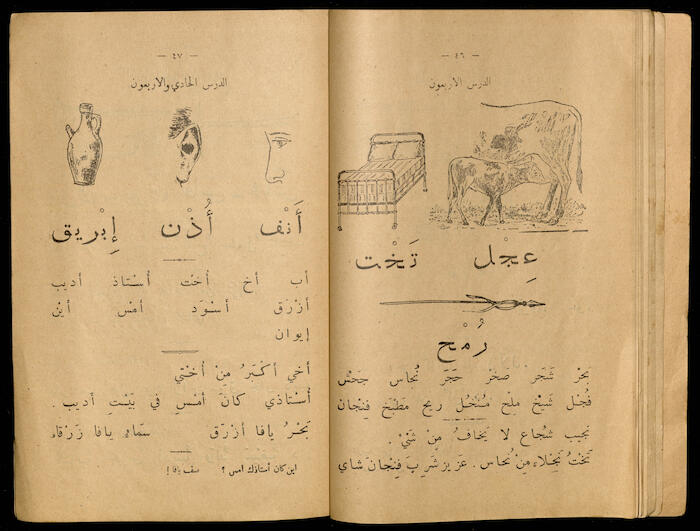 — ٤٦ —
الدرس الاربعون
عِجْل تَخْت
رُمْح
بَحْرْ شَجَرْ صَخْرْ حَجَرْ نُحاس جَحْش
فُجْل شَيْخ مِلْح مُنْخُل ريح مَطْبَخ فِنْجان
نجيب شُجاع لا يَخافُ مِنْ شَيْ .
تَخْتُ نَجْلاء مِنْ نُحاس . عَزيز شَرِبَ فِنْجانَ شاي
— ٤٧ —
الدرس الحادي والاربعون
أَنْف أُذْن إِبْريق
أب أخ أخْت أُسْتاذ أديب
أزْرَق أسْوَد أمْس أيْن
إيوان
أخي أكْبَرُ مِنْ أُخْتي
أُسْتاذي كانَ أمْسِ في بَيْتِ أديب .
بَحْرُ يافا أزْرَق سَماءُ يافا زَرْقاء
اين كان أستاذك امس ؟ صف يافا !